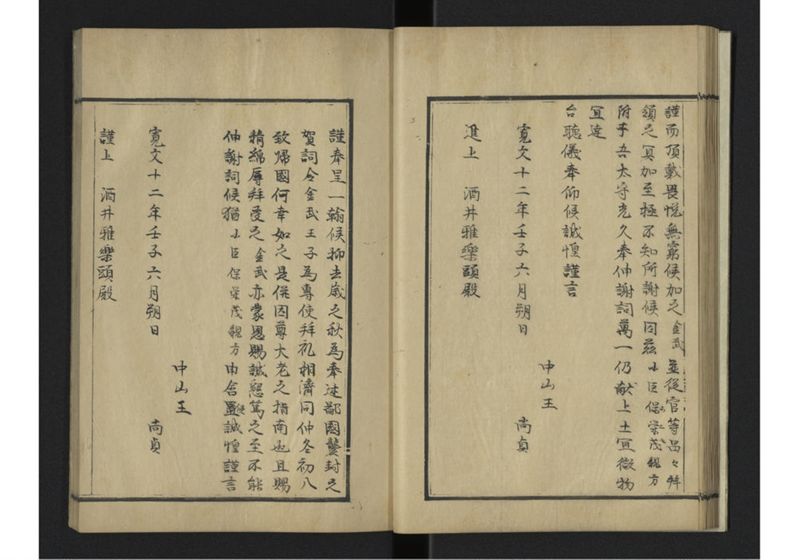 謹而頂戴畏悦無窮候加之金武並従官等品々拝
領之冥加至極不知所謝候因茲小臣保栄茂親方
附于吾太守光久奉伸謝詞萬一仍献上土宜微物
宜達
台聴儀奉仰候誠惶謹言
寛文十二年壬子六月朔日
中山王 尚貞
進上 酒井雅樂頭殿
謹奉呈一翰候抑去歳之秋為奉述鄙國襲封之
賀詞令金武王子為專使拜礼相濟同仲冬初八
致帰國何幸如之是併因尊大老之指南也且賜
精綿辱拜受之金武亦蒙恩賜誠恕篤之至不能
伸謝詞候猶小臣保栄茂親方申含置候誠惶謹言
寛文十二年壬子六月朔日
中山王 尚貞
謹上 酒井雅樂頭殿